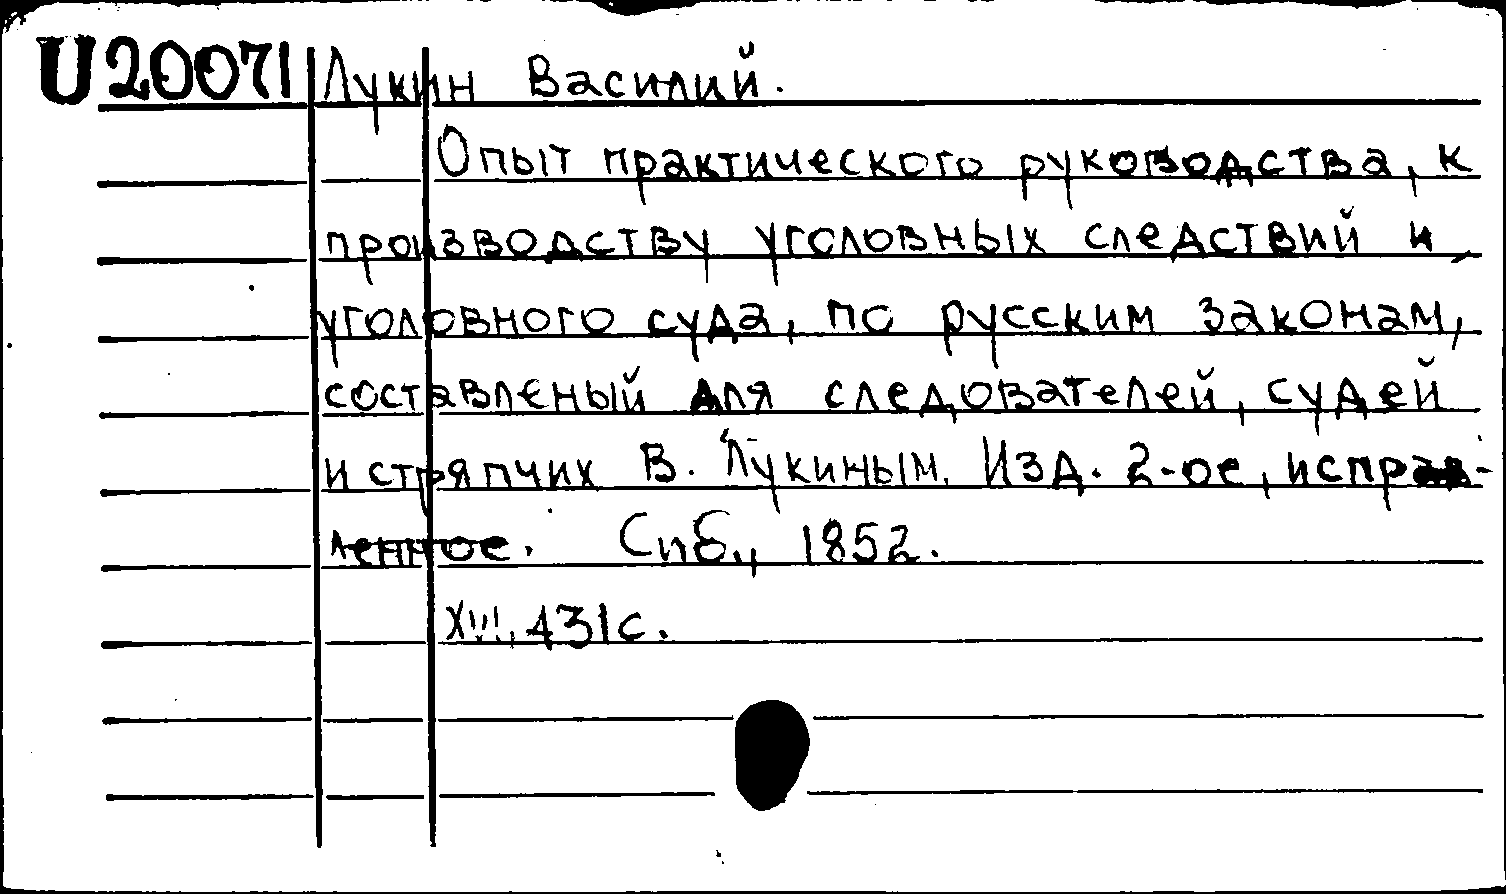 U20071 Лукин Василий.
Опыт практического руководства, к
производству уголовных следствий и
уголовного суда, по русским законам,
составленый для следователей, судей
и стряпчих В. Лукиным. Изд. 2-ое, исправ-
ленное. Спб., 1852.
XVI, 431 с.